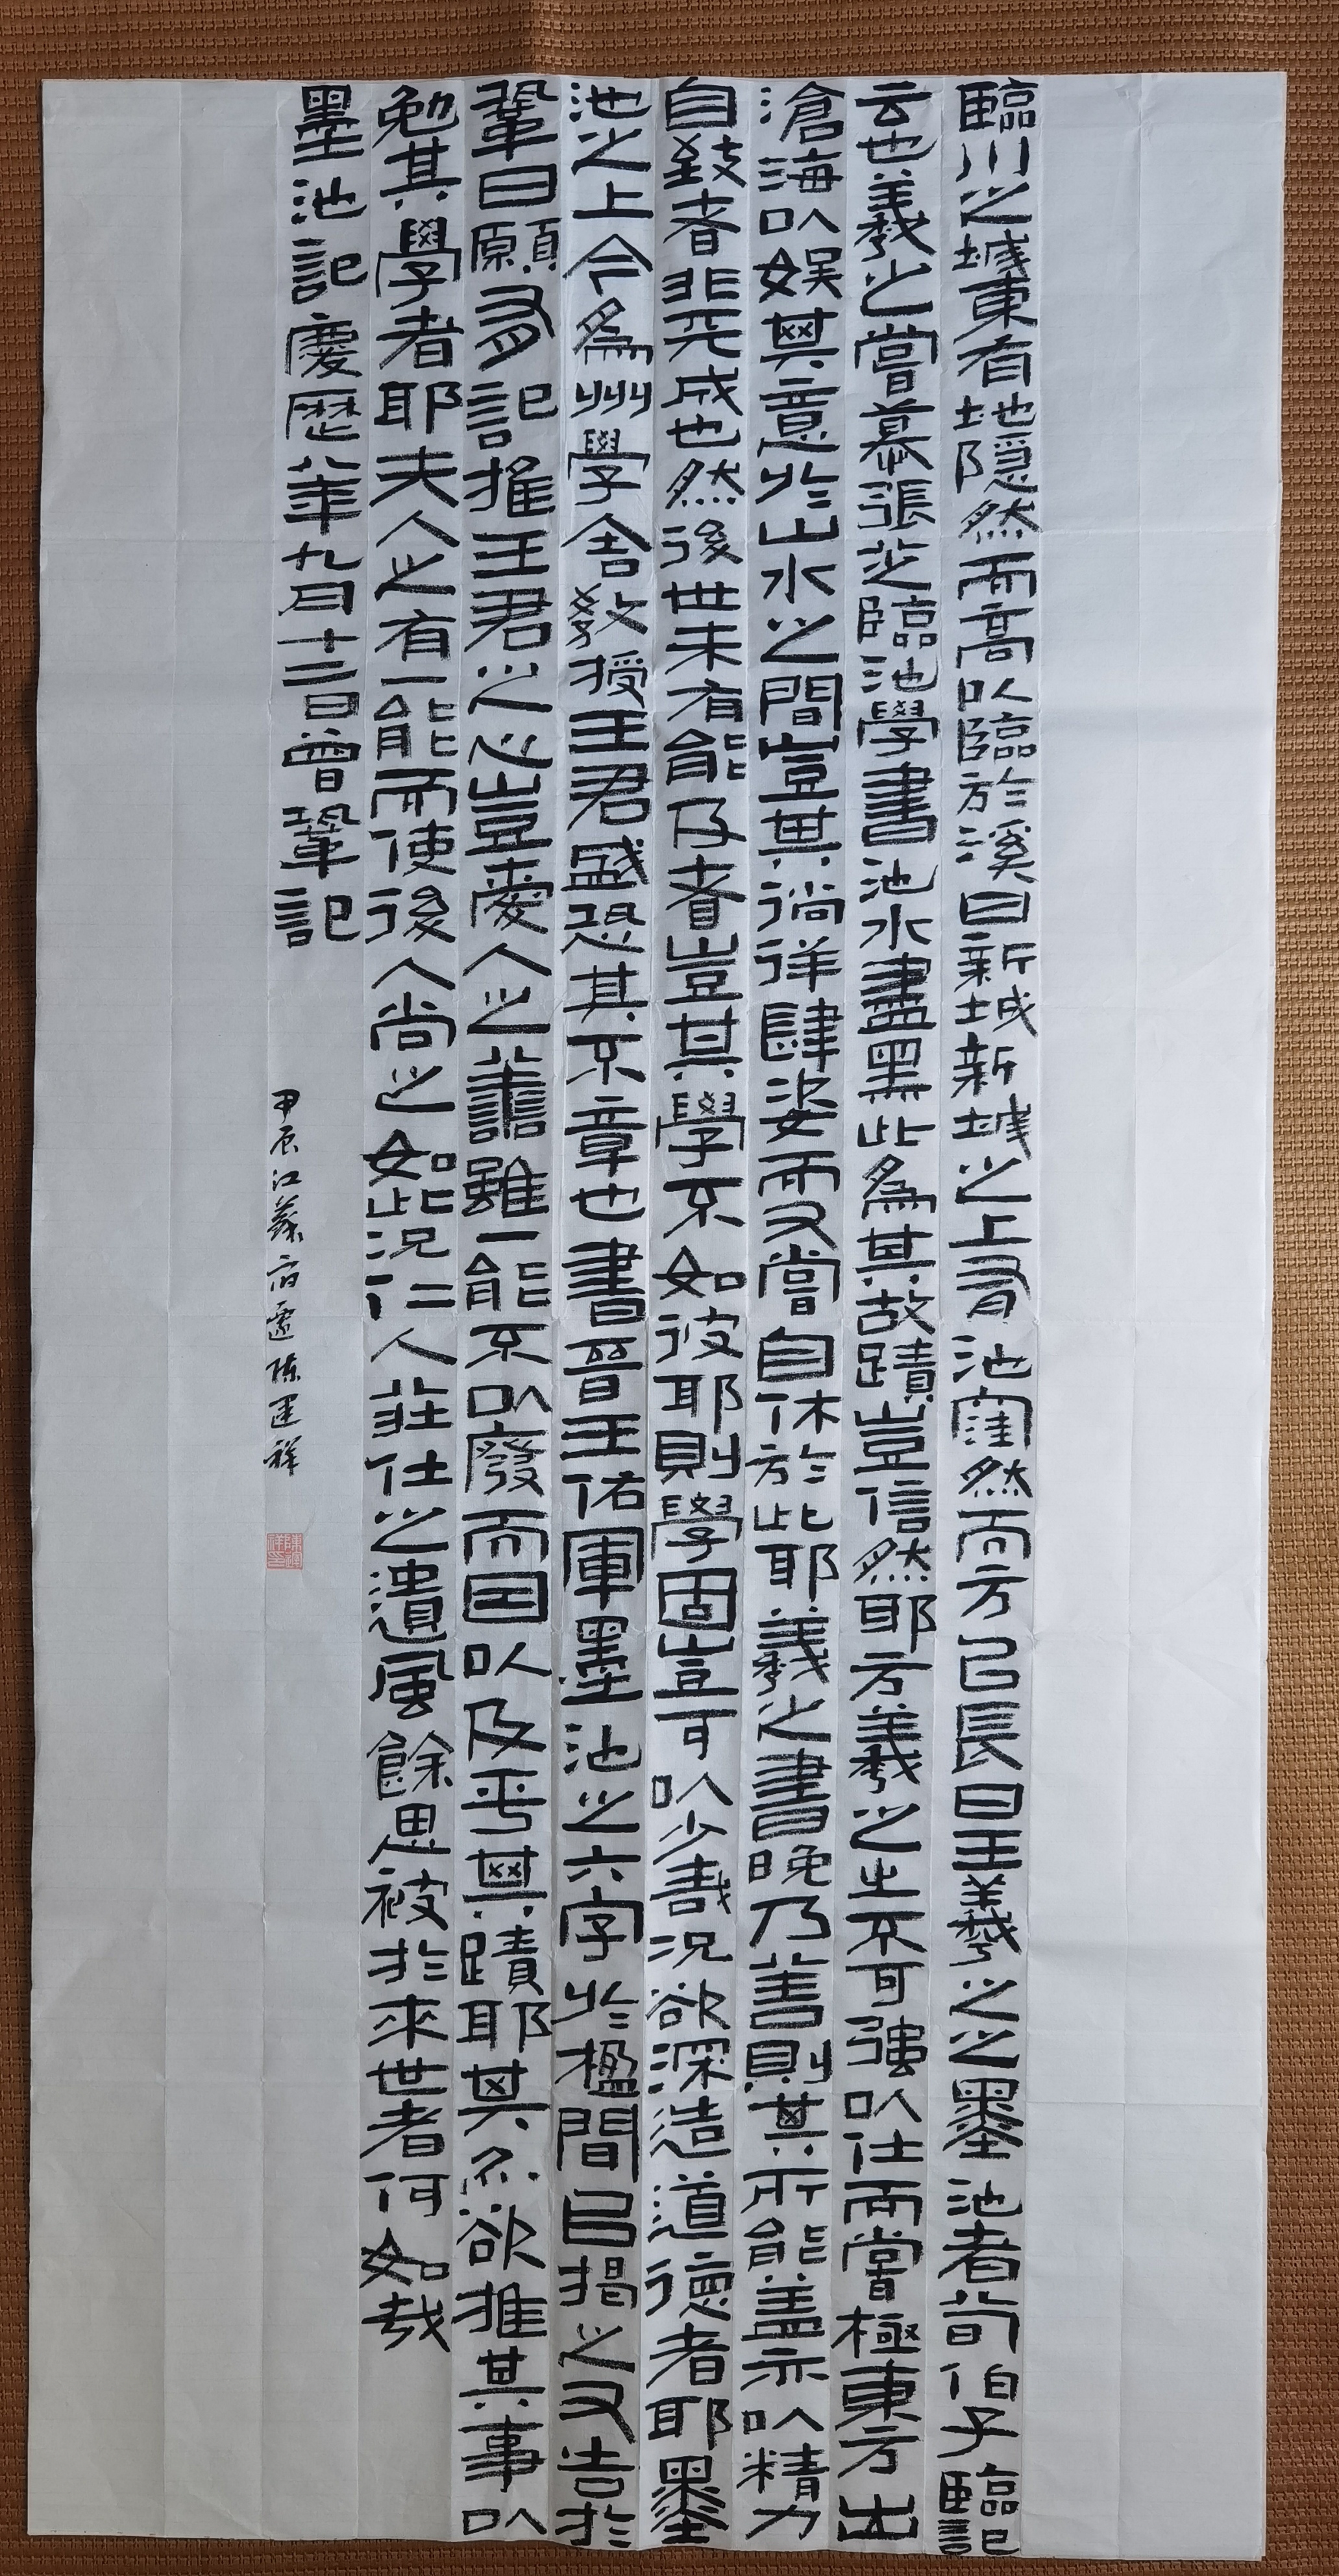 臨川之城東有地隱然而高以臨於溪曰新城新城之上有池窪然而方以長曰王羲之之墨池者荀伯子臨川記
云也羲之嘗慕張芝臨池學書池水盡黑此為其故蹟豈信然耶方羲之之不可強以仕而嘗極東方出
滄海以娱其意於山水之間豈其徜徉肆姿而又嘗自休於此耶羲之書晚乃善則其所能蓋亦以精力
自致者非天成也然後世未有能及者豈其學不如彼耶則學固豈可以少哉況欲深造道德者耶墨
池之上今為州學舍教授王君盛恐其不章也書晉王佑軍墨池之六字於楹間以揭之又告於
鞏曰願有記推王君之心豈愛人之善雖一能不以廢而因以及乎其蹟耶其亦欲推其事以
勉其學者耶夫人之有一能而使後人尚之如此況仁人莊仕之遺風餘思被於來世者何如哉
墨池記慶歷八年九月十二日曾鞏記
甲辰江蘇宿遷陳建祥